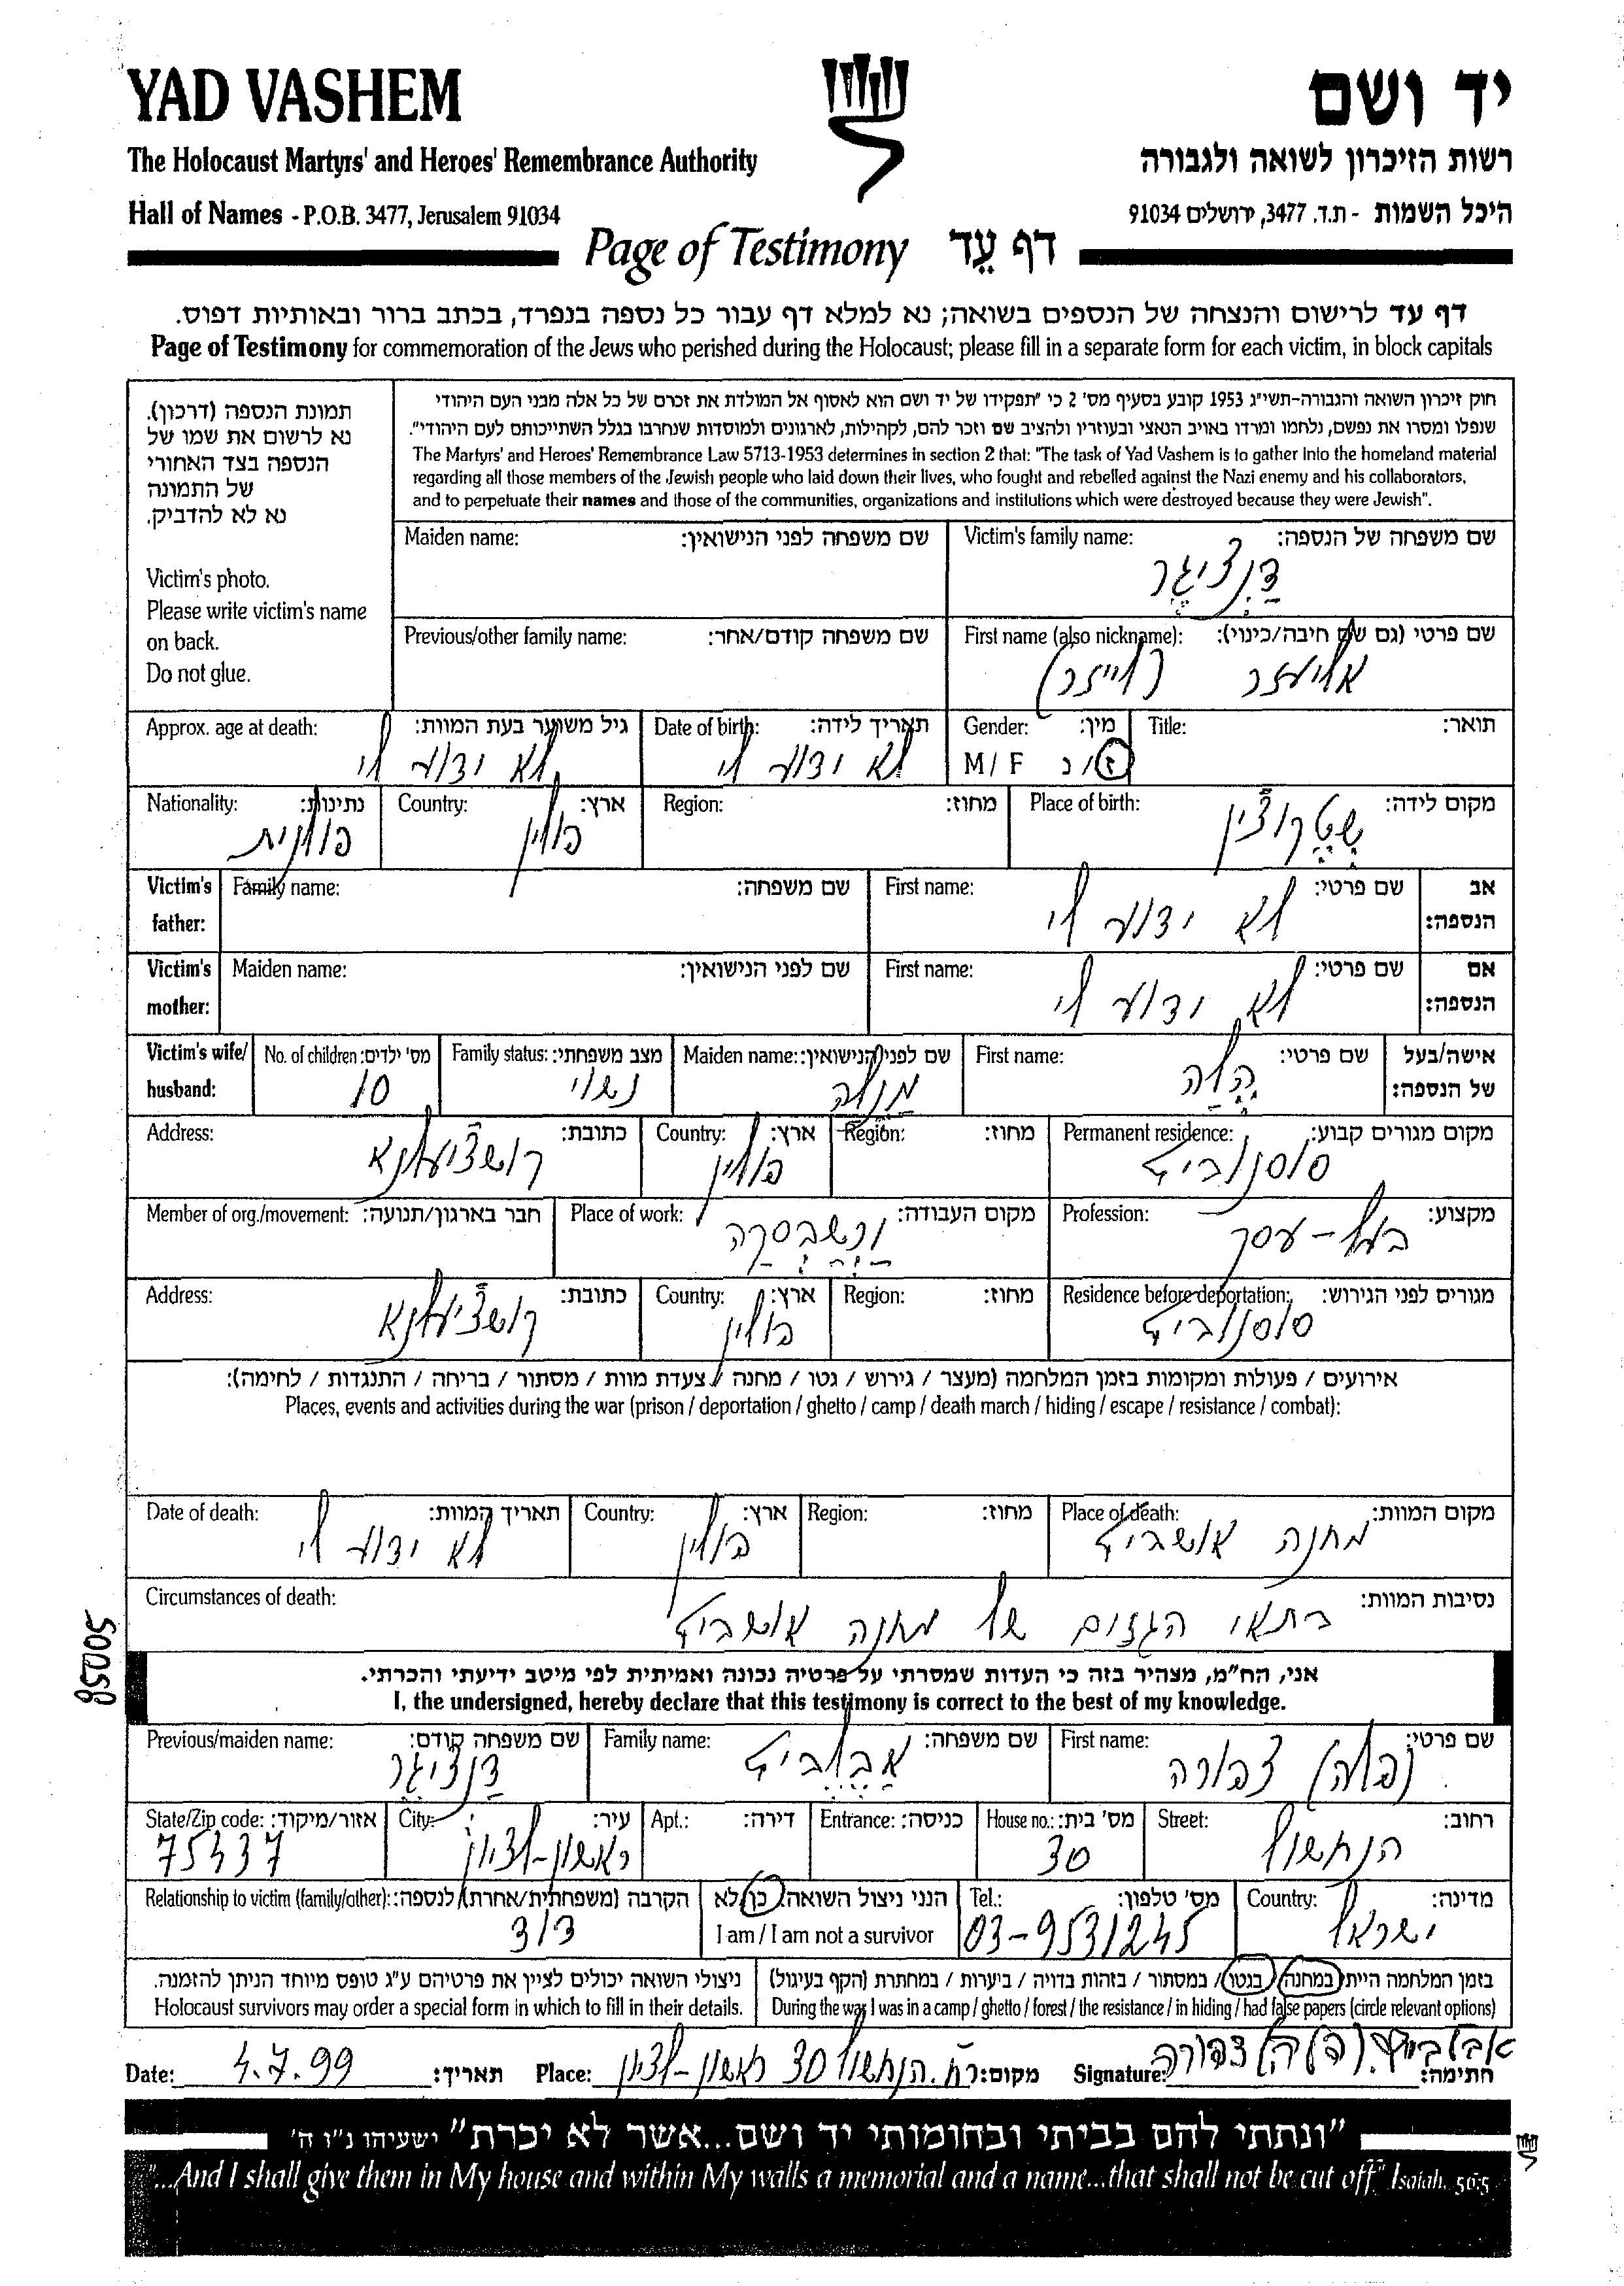 YAD VASHEM
יד ושם
The Holocaust Martyrs' and Heroes' Remembrance Authority
רשות הזיכרון לשואה ולגבורה
Hall of Names - P.O.B. 3477, Jerusalem 91034
היכל השמות - ת.ד. 3477, ירושלים 91034
Page of Testimony דף עֵד
דף עד לרישום והנצחה של הנספים בשואה; נא למלא דף עבור כל נספה בנפרד, בכתב ברור ובאותיות דפוס.
Page of Testimony for commemoration of the Jews who perished during the Holocaust; please fill in a separate form for each victim, in block capitals
תמונת הנספה (דרכון).
נא לרשום את שמו של
הנספה בצד האחורי
של התמונה
נא לא להדביק.
Victim's photo.
Please write victim's name
on back.
Do not glue.
חוק זיכרון השואה והגבורה-תשי״ג 1953 קובע בסעיף מס' 2 כי "תפקידו של יד ושם הוא לאסוף אל המולדת את זכרם של כל אלה מבני העם היהודי
שנפלו ומסרו את נפשם, נלחמו ומרדו באויב הנאצי ובעוזריו ולהציב שם וזכר להם, לקהילות, לארגונים ולמוסדות שנחרבו בגלל השתייכותם לעם היהודי".
The Martyrs' and Heroes' Remembrance Law 5713-1953 determines in section 2 that: "The task of Yad Vashem is to gather into the homeland material
regarding all those members of the Jewish people who laid down their lives, who fought and rebelled against the Nazi enemy and his collaborators,
and to perpetuate their names and those of the communities, organizations and institutions which were destroyed because they were Jewish".
שם משפחה של הנספה: Victim's family name:
דנציגר
שם משפחה לפני הנישואין: Maiden name:
שם פרטי (גם שם חיבה/כינוי): First name (also nickname):
אליעזר (לייזר)
שם משפחה קודם/אחר: Previous/other family name:
תואר: Title:
מין: Gender:
ז/נ M/F
תאריך לידה: Date of birth:
לא ידוע לי
גיל משוער בעת המוות: Approx. age at death:
לא ידוע לי
מקום לידה: Place of birth:
מחוז: Region:
ארץ: Country:
פולין
נתינות: Nationality:
פולנית
אב הנספה: שם פרטי: First name:
לא ידוע לי
שם משפחה: Family name:
Victim's father:
אם הנספה: שם פרטי: First name:
לא ידוע לי
שם לפני הנישואין: Maiden name:
Victim's mother:
אישה/בעל של הנספה: שם פרטי: First name:
הלה
שם לפני הנישואין: Maiden name:
מנלה
מצב משפחתי: Family status:
נשוי
מס' ילדים: No. of children:
10
Victim's wife/ husband:
מקום מגורים קבוע: Permanent residence:
סוסנוביץ
מחוז: Region:
ארץ: Country:
פולין
כתובת: Address:
קושצ'יעלנא
מקצוע: Profession:
בעל-עסק
מקום העבודה: Place of work:
חבר בארגון/תנועה: Member of org./movement:
מגורים לפני הגירוש: Residence before deportation:
סוסנוביץ
מחוז: Region:
ארץ: Country:
פולין
כתובת: Address:
קושצ'יעלנא
אירועים / פעולות ומקומות בזמן המלחמה (מעצר / גירוש / גטו / מחנה / צעדת מוות / מסתור / בריחה / התנגדות / לחימה):
Places, events and activities during the war (prison / deportation / ghetto / camp / death march / hiding / escape / resistance / combat):
מקום המוות: Place of death:
מחנה אושביץ
מחוז: Region:
ארץ: Country:
פולין
תאריך המוות: Date of death:
לא ידוע לי
נסיבות המוות: Circumstances of death:
בתאי הגזים של מחנה אושביץ
50058
אני, הח״מ, מצהיר בזה כי העדות שמסרתי על פרטיה נכונה ואמיתית לפי מיטב ידיעתי והכרתי.
I, the undersigned, hereby declare that this testimony is correct to the best of my knowledge.
שם פרטי: First name:
(פלה) צפורה
שם משפחה: Family name:
אבלביץ
שם משפחה קודם: Previous/maiden name:
דנציגר
רחוב: Street:
הנחשול
מס' בית: House no.:
30
כניסה: Entrance:
דירה: Apt.:
עיר: City:
ראשון-לציון
אזור/מיקוד: State/Zip code:
75437
מדינה: Country:
ישראל
מס' טלפון: Tel.:
03-9531245
הנני ניצול השואה: כן/לא
I am / I am not a survivor
הקרבה (משפחתית/אחרת) לנספה: Relationship to victim (family/other):
דוד
בזמן המלחמה הייתי במחנה/ בגטו/ במסתור / בזהות בדויה / ביערות / במחתרת (הקף בעיגול)
During the war I was in a camp / ghetto / forest / the resistance / in hiding / had false papers (circle relevant options)
ניצולי השואה יכולים לציין את פרטיהם ע״ג טופס מיוחד הניתן להזמנה.
Holocaust survivors may order a special form in which to fill in their details.
Date: 4.7.99 תאריך:
Place: רח. הנחשול 30 ראשון-לציון מקום:
Signature: אבלביץ (פלה) צפורה חתימה:
"ונתתי להם בביתי ובחומותי יד ושם...אשר לא יכרת" ישעיהו נ״ו ה'
"...And I shall give them in My house and within My walls a memorial and a name...that shall not be cut off." Isaiah, 56:5